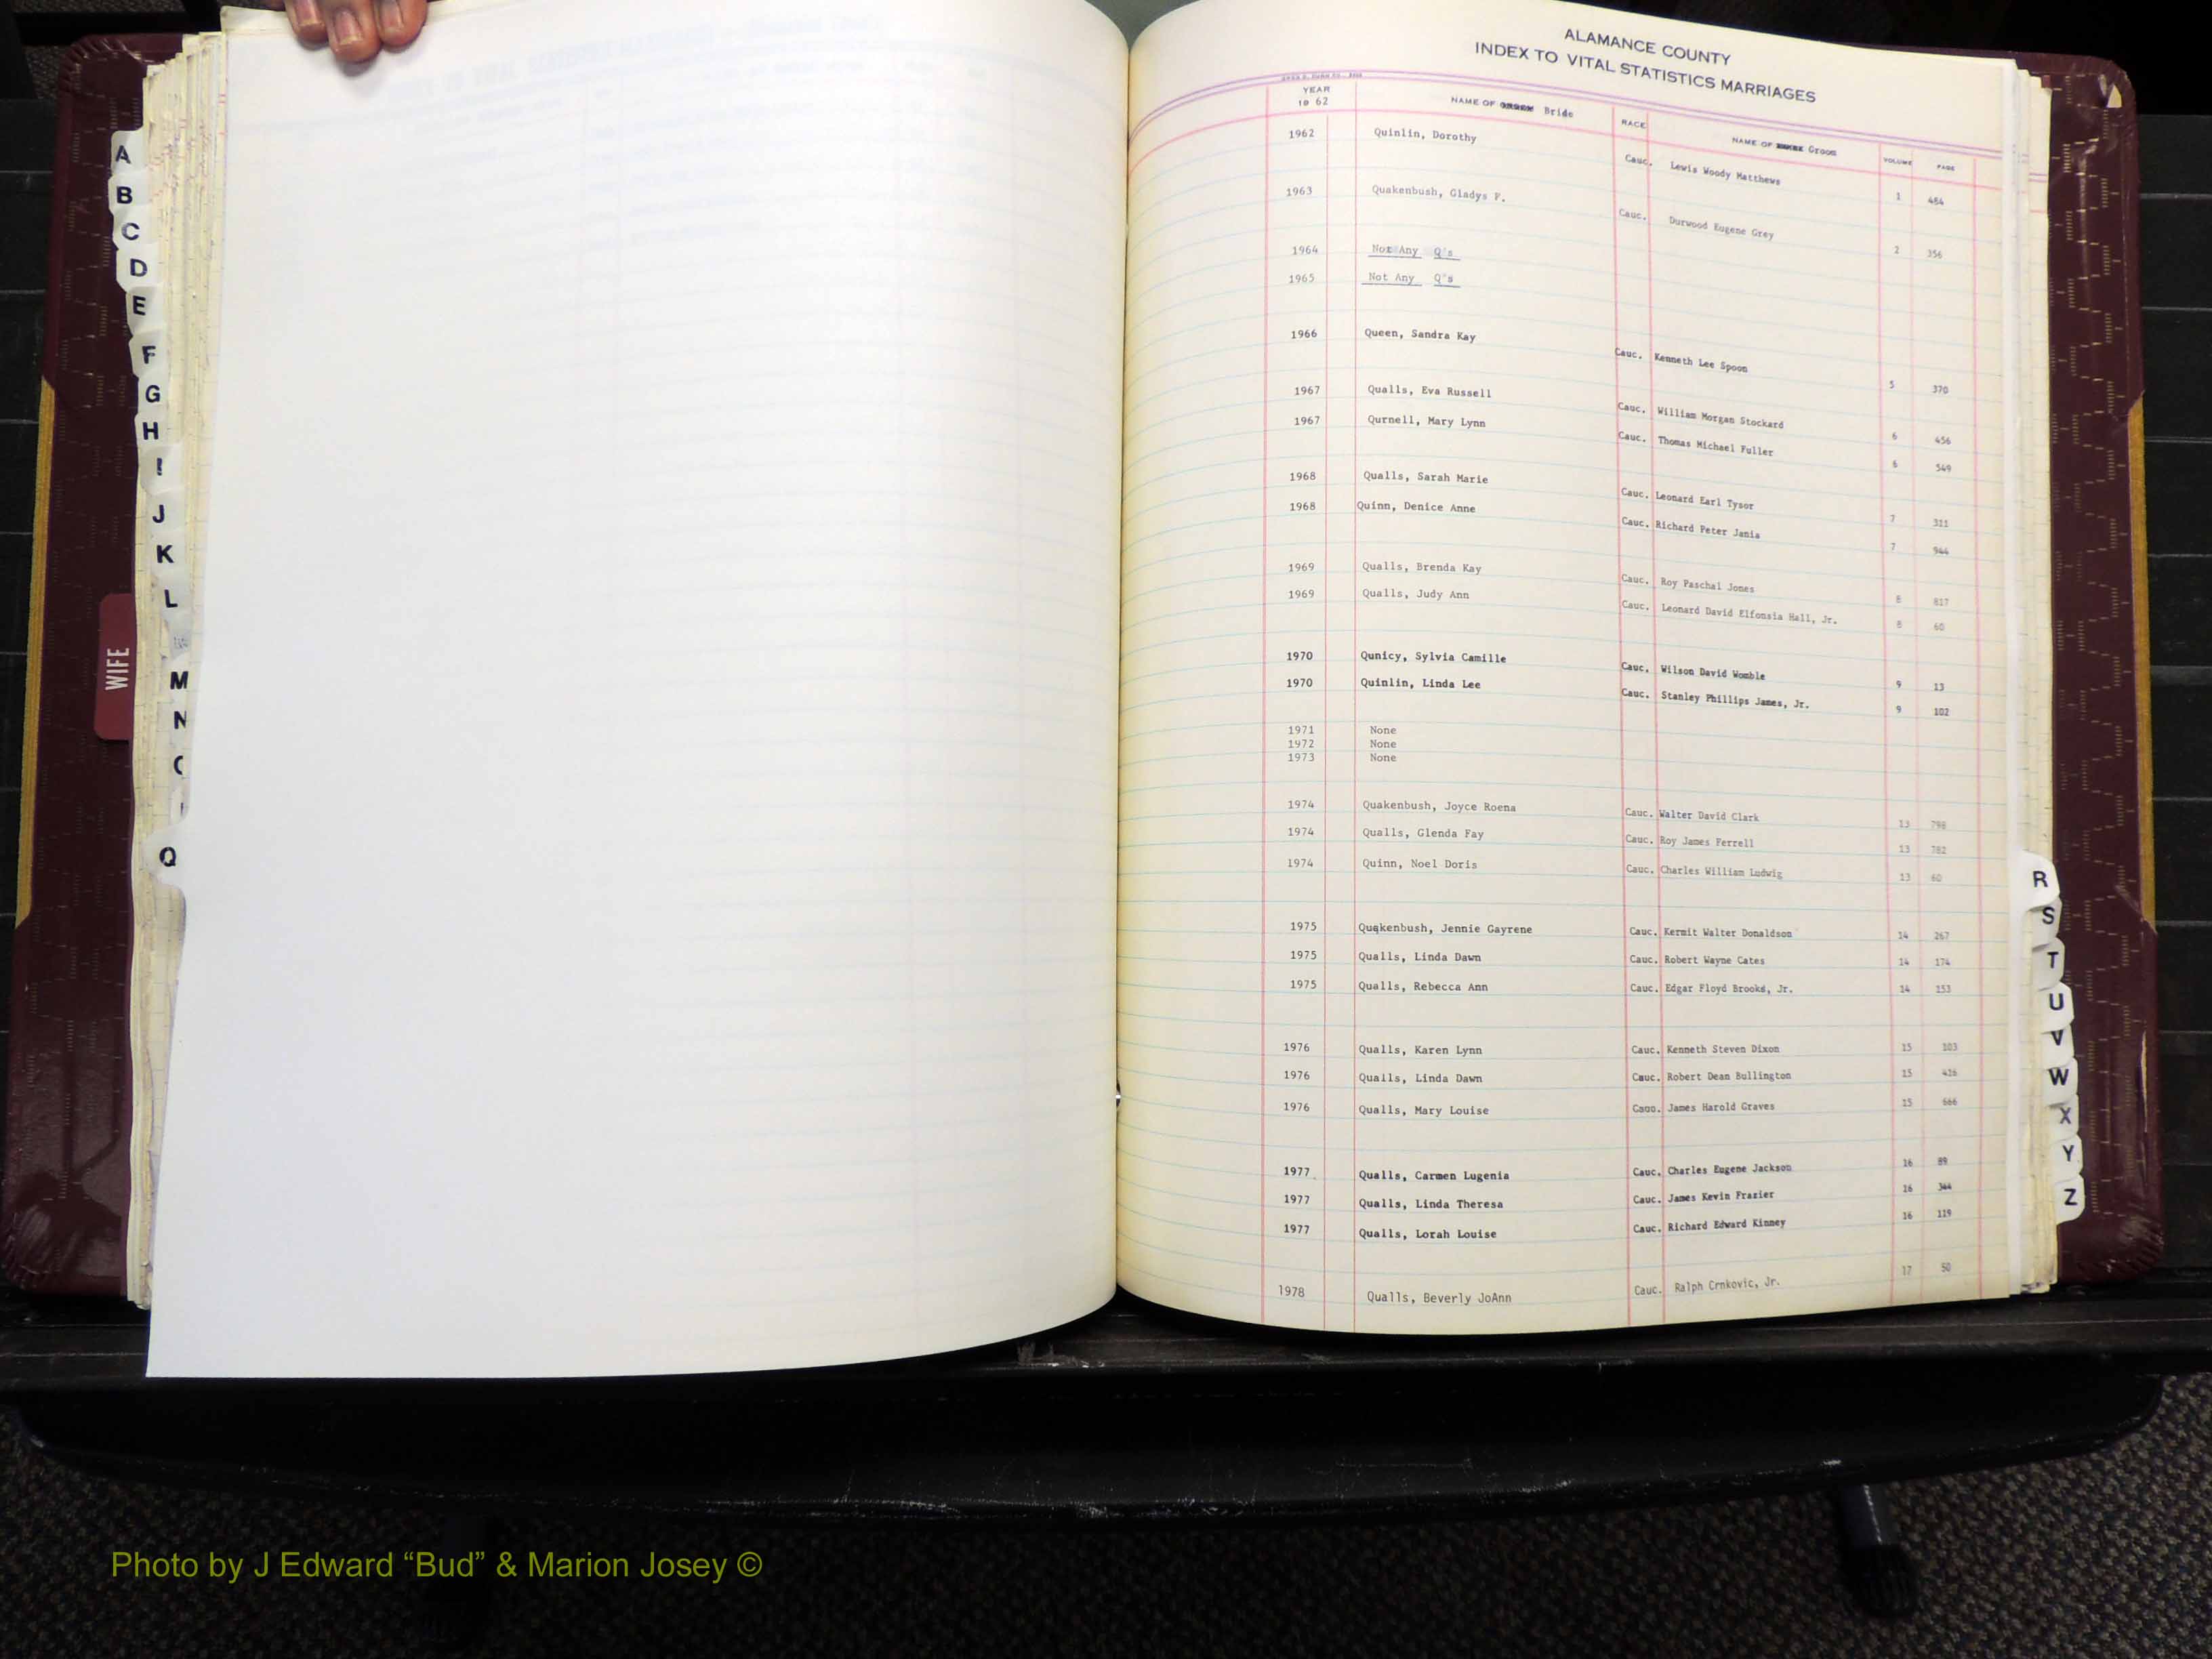 ALAMANCE COUNTY
INDEX TO VITAL STATISTICS MARRIAGES
YEAR 19 62 NAME OF Bride RACE NAME OF Groom VOLUME PAGE
1962 Quinlin, Dorothy Cauc. Lewis Woody Matthews 1 484
1963 Quakenbush, Gladys F. Cauc. Durwood Eugene Grey 2 356
1964 Not Any Q's
1965 Not Any Q's
1966 Queen, Sandra Kay Cauc. Kenneth Lee Spoon 5 370
1967 Qualls, Eva Russell Cauc. William Morgan Stockard 6 456
1967 Qurnell, Mary Lynn Cauc. Thomas Michael Fuller 6 549
1968 Qualls, Sarah Marie Cauc. Leonard Earl Tysor 7 311
1968 Quinn, Denice Anne Cauc. Richard Peter Janis 7 944
1969 Qualls, Brenda Kay Cauc. Roy Paschal Jones 8 817
1969 Qualls, Judy Ann Cauc. Leonard David Elfonsia Hall, Jr. 8 60
1970 Qunicy, Sylvia Camille Cauc. Wilson David Womble 9 13
1970 Quinlin, Linda Lee Cauc. Stanley Phillips James, Jr. 9 102
1971 None
1972 None
1973 None
1974 Quakenbush, Joyce Roena Cauc. Walter David Clark 13 798
1974 Qualls, Glenda Fay Cauc. Roy James Ferrell 13 782
1974 Quinn, Noel Doris Cauc. Charles William Ludwig 13 60
1975 Quakenbush, Jennie Gayrene Cauc. Kermit Walter Donaldson 14 267
1975 Qualls, Linda Dawn Cauc. Robert Wayne Cates 14 174
1975 Qualls, Rebecca Ann Cauc. Edgar Floyd Brooks, Jr. 14 153
1976 Qualls, Karen Lynn Cauc. Kenneth Steven Dixon 15 103
1976 Qualls, Linda Dawn Cauc. Robert Dean Bullington 15 416
1976 Qualls, Mary Louise Cauc. James Harold Graves 15 666
1977 Qualls, Carmen Lugenia Cauc. Charles Eugene Jackson 16 89
1977 Qualls, Linda Theresa Cauc. James Kevin Frazier 16 344
1977 Qualls, Lorah Louise Cauc. Richard Edward Kinney 16 119
1978 Qualls, Beverly JoAnn Cauc. Ralph Crnkovic, Jr. 17 50
A
B
C
D
E
F
G
H
I
J
K
L
M
N
Q
WIFE
R
S
T
U
V
W
X
Y
Z
Photo by J Edward “Bud” & Marion Josey ©